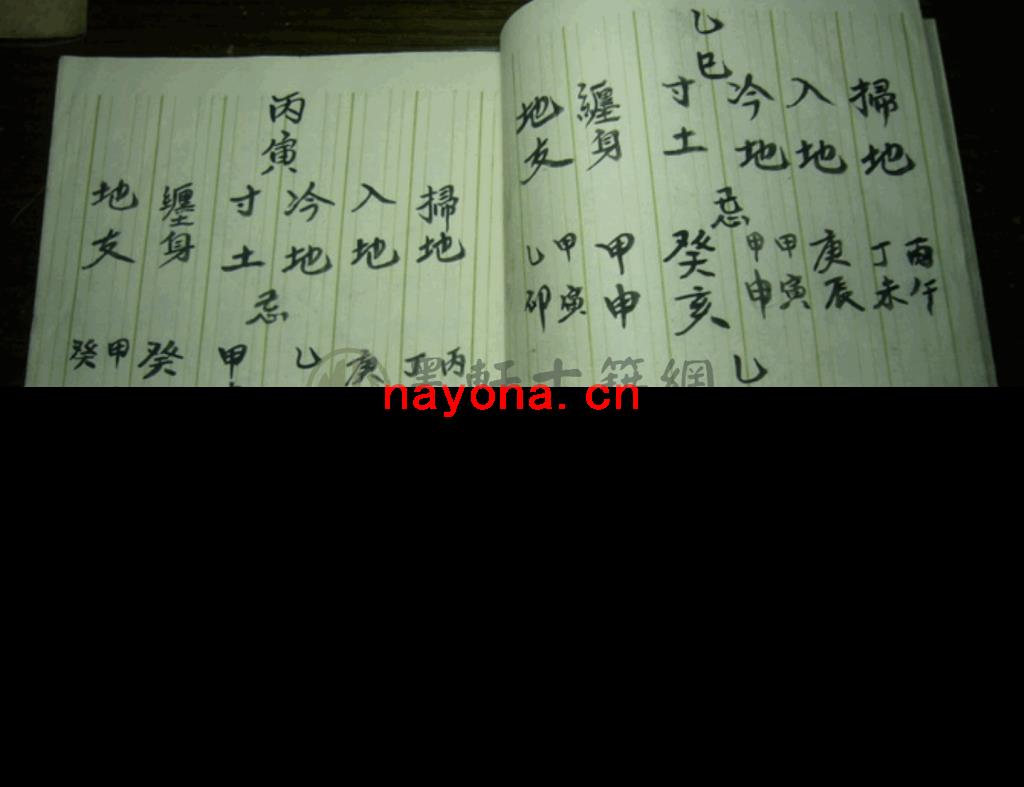 乙巳
掃地
入地
冷地
寸土
纏身
地友
忌
丙午
丁未
庚辰
甲寅
甲申
癸亥
甲申
甲寅
乙卯
乙
丙寅
掃地
入地
冷地
寸土
纏身
地友
忌
丙
丁
庚
乙
甲
癸
甲
癸
墨軒古籍網
nayona.cn